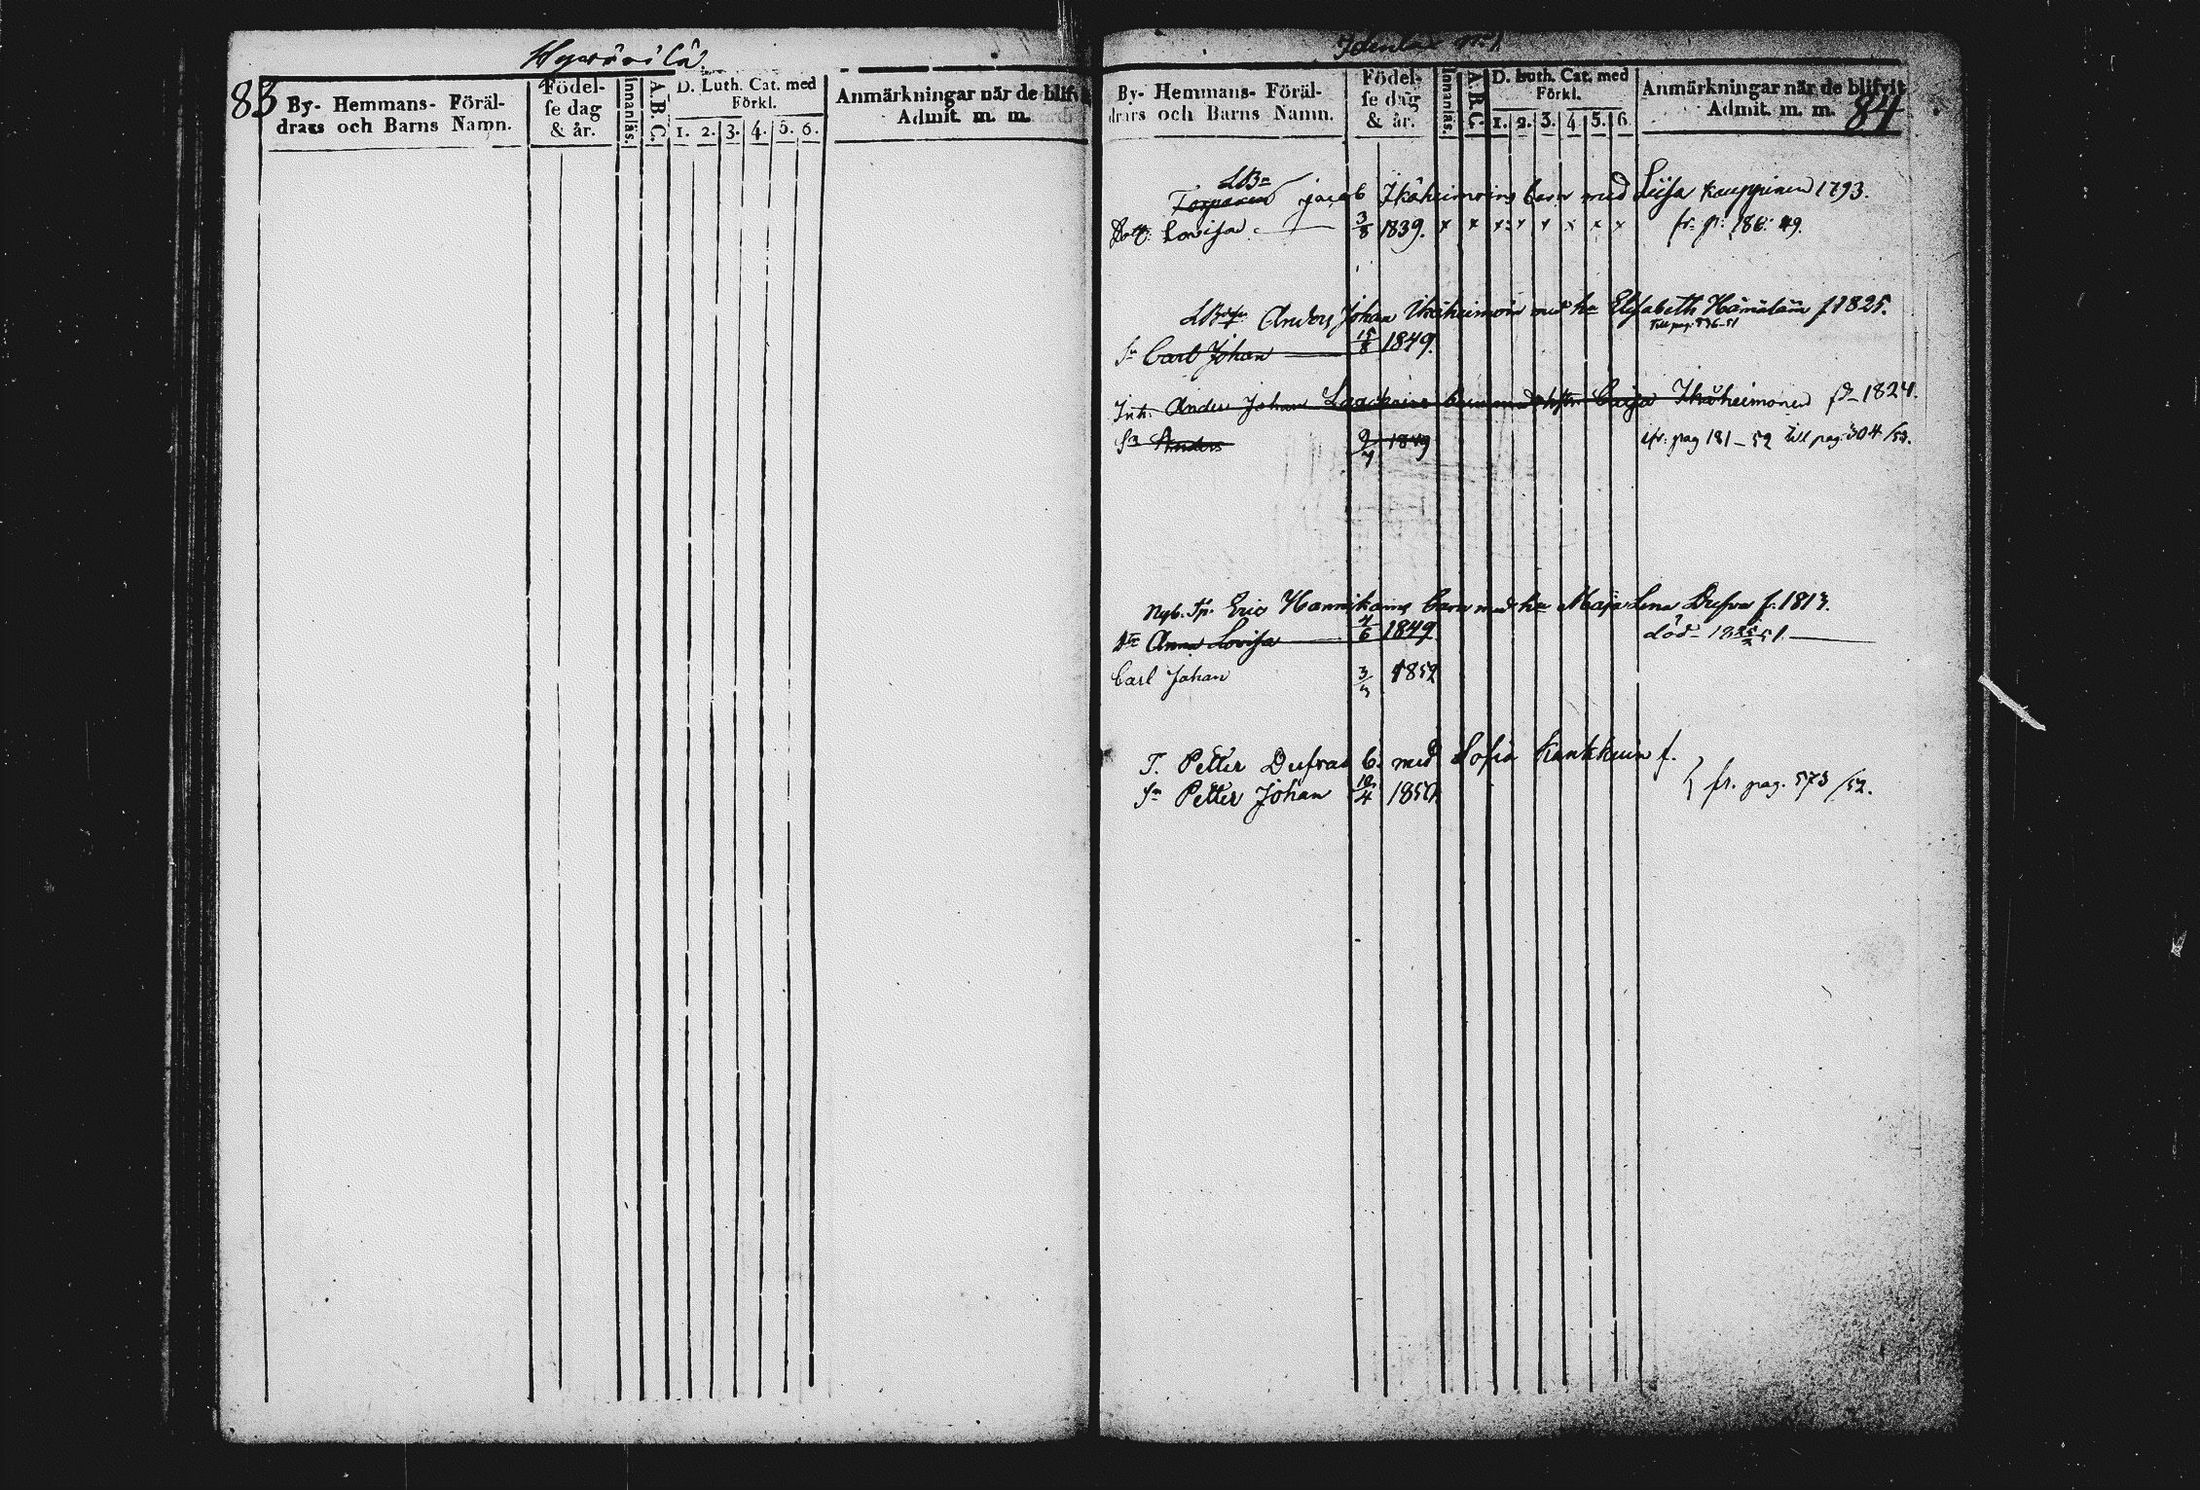 83
By- Hemmans- Föräl-
drars och Barns Namn.
Födel-
se dag
& år.
Innanläs.
A. B. C.
D. Luth. Cat. med
Förkl.
1. 2. 3. 4. 5. 6.
Anmärkningar när de blifvit
Admit. m. m.
84
By- Hemmans- Föräl-
drars och Barns Namn.
Födel-
se dag
& år.
Innanläs.
A. B. C.
D. Luth. Cat. med
Förkl.
1. 2. 3. 4. 5. 6.
Anmärkningar när de blifvit
Admit. m. m.
Jacob Ikäheimoins barn med Liisa Kauppinen 1793.
Lovisa 3/8 1839. x x x x x x x x fr. p: 186: 49.
Anders Johan Ikäheimoin med hu Elisabeth Hämäläin f 1825.
Sn Carl Johan 15/8 1849.
Inh. Anders Johan barn med Caisa Ikäheimonen 1824.
Sn Anders 9/7 1849 fr: pag 181-52 till pag: 304/53.
Nyb. Eric Hannikains barn med hu Maja Lena Dufva f. 1813.
Dr Anna Lovisa 4/6 1849 död
Carl Johan 1852
T. Petter Dufvas b. med Sofia f.
Sn Petter Johan fr. pag. 573/52.